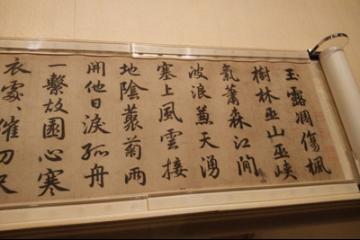 玉露凋傷楓
樹林巫山巫峽
氣蕭森江間
波浪兼天湧
塞上風雲接
地陰藂菊兩
開他日淚孤舟
一繫故園心寒
衣處〻催刀尺